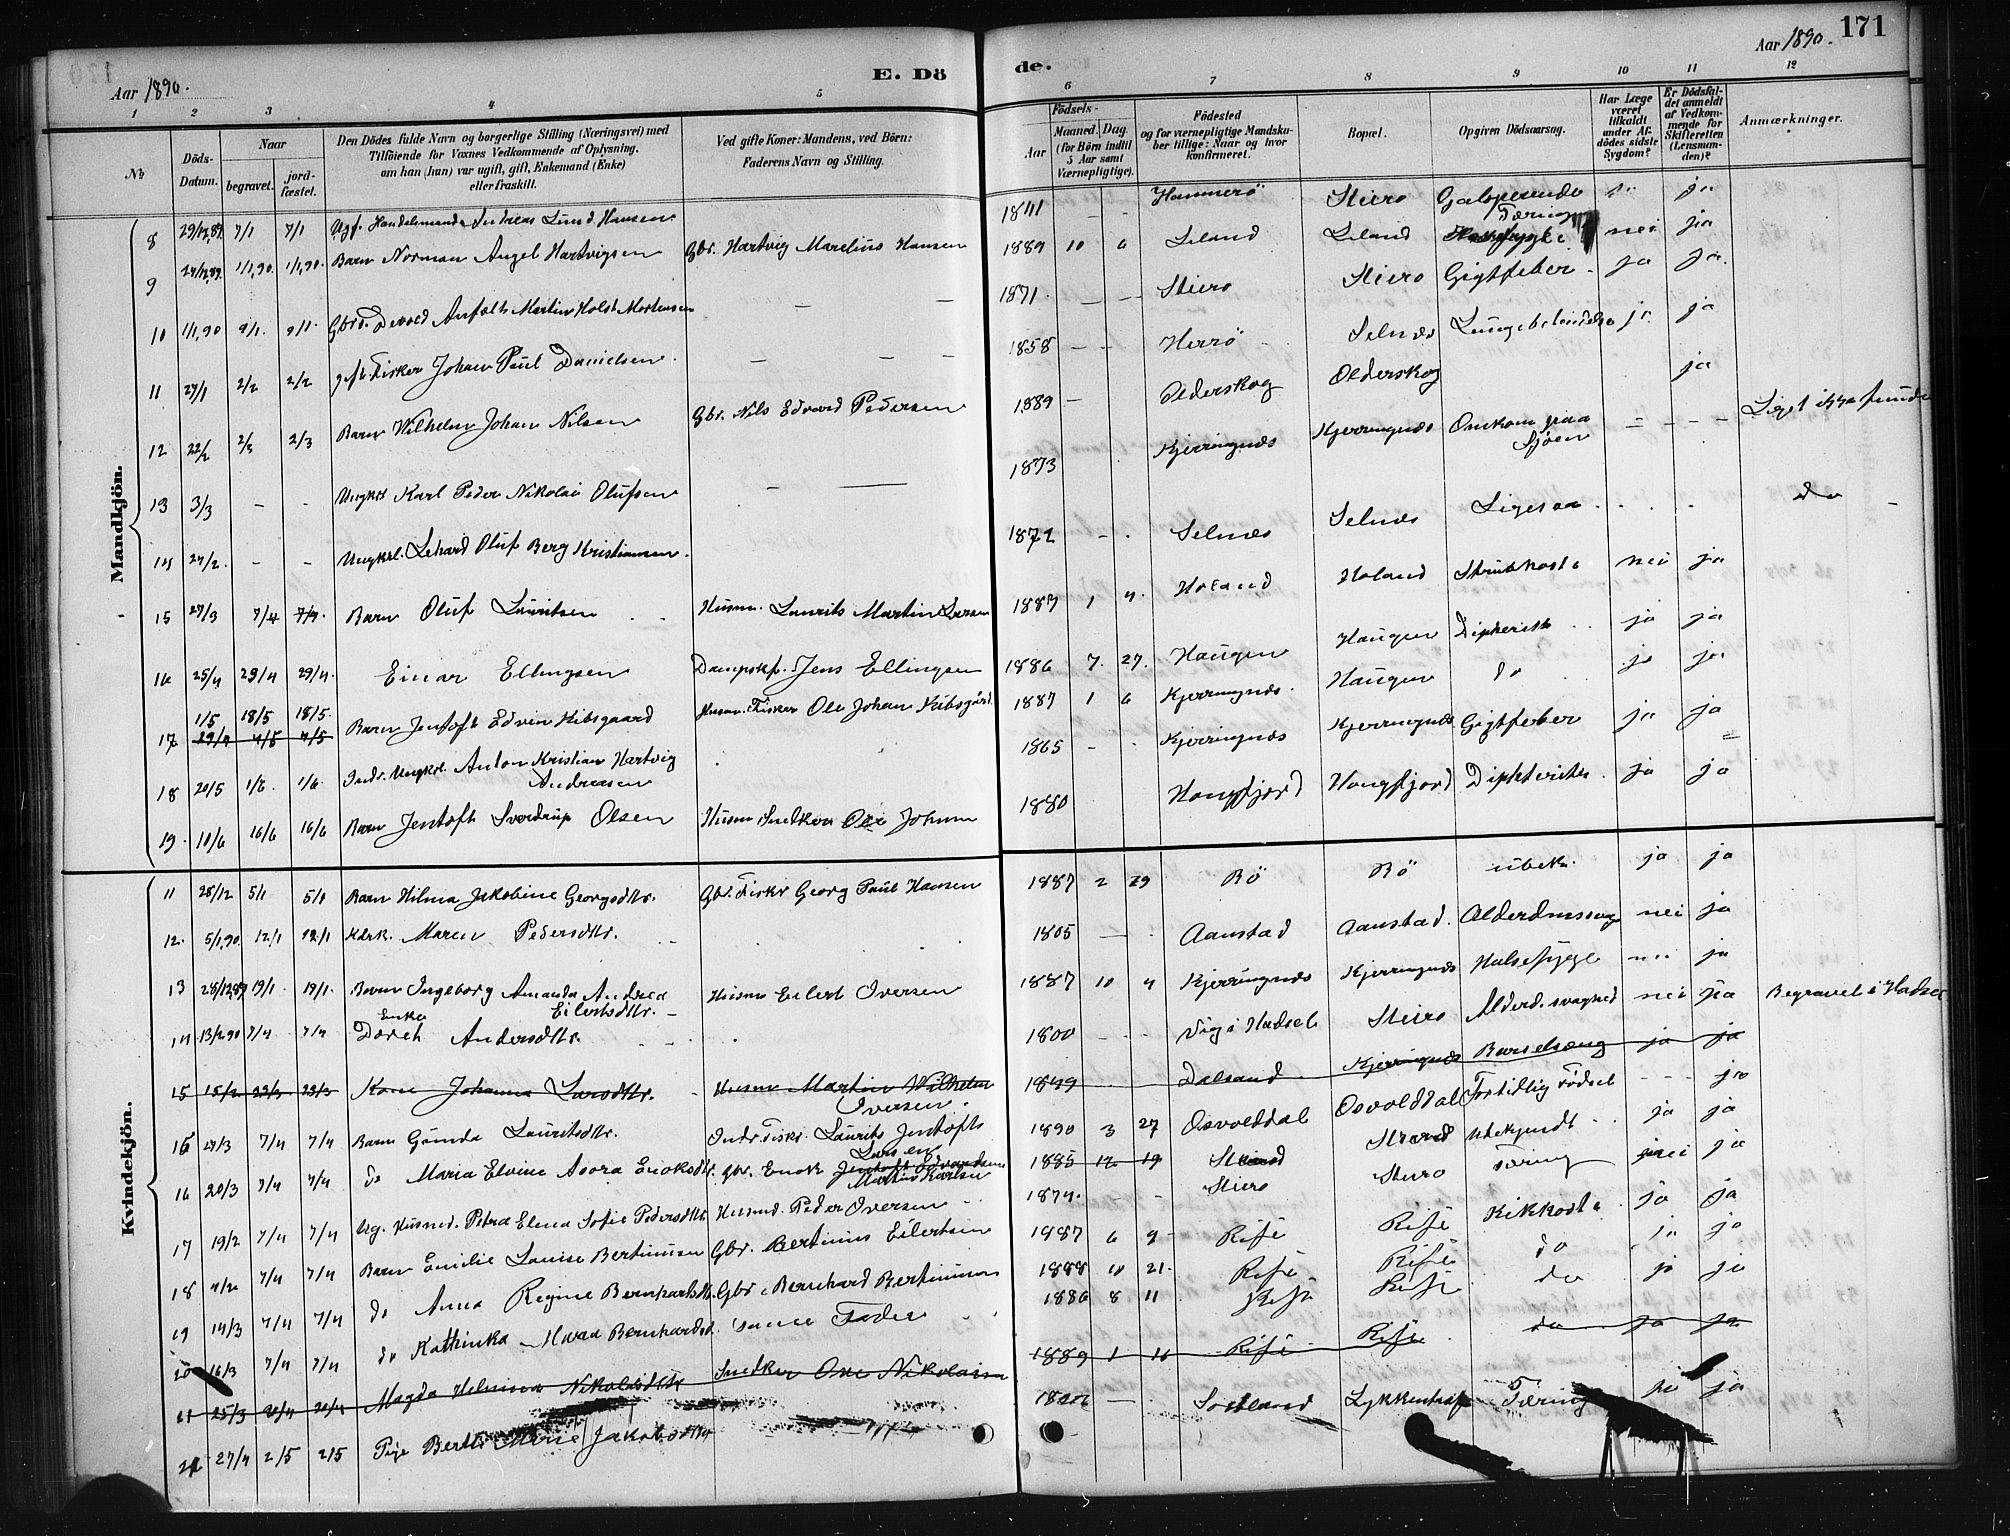 Aar 1890.
E. Dö
de.
Aar 1890.
171
1 2 3 4 5 6 7 8 9 10 11 12
No
Döds-Datum.
Naar
begravet.
jord-fæstet.
Den Dödes fulde Navn og borgerlige Stilling (Næringsvei) med Tilföiende for Voxnes Vedkommende af Oplysning, om han (hun) var ugift, gift, Enkemand (Enke) eller fraskilt.
Ved gifte Koner: Mandens, ved Börn: Faderens Navn og Stilling.
Födsels-
Aar
Maaned. Dag.
(for Börn indtil 5 Aar samt Værnepligtige).
Födested og for værnepligtige Mandskaber tillige: Naar og hvor konfirmeret.
Bopæl.
Opgiven Dödsaarsag.
Har Læge været tilkaldt under Afdödes sidste Sygdom?
Er Dödsfaldet anmeldt af Vedkommende for Skifteretten (Lensmanden)?
Anmærkninger.
Mandkjön.
8 29/12,89 7/1 7/1 Ugf. Handelsmand Andreas Lund Hansen 1841 - - Hammerö Steiro Galoperende Tæring ja ja
9 1/1,90. 1/1,90. Barn Norman Angel Hartvigsen Gbr. Hartvig Marelius Hansen 1889 10 6 Leland Leland nei ja
10 1/1,90 9/1. 9/1. Gbrs. Devold Anfelth Martin Holst Mortensen - - 1871. - - Steiro Steiro Gigtfeber - ja ja.
11 27/1 2/2 2/2 gift. Fisker Johan Paul Danielsen. - - - 1858 - - Herrö Selnes Lungebetændelse ja ja
12 22/2 2/3 2/3 Barn Vilhelm Johan Nilsen Gbr. Nils Edvard Pedersen 1889 - Olderskog Olderskog ja
13 3/3 - - Ungkrl Karl Peder Nikolai Olufsen - - 1873 Kjerringnes Kjerringnes Omkom paa Sjöen - - - - Liget ikke funde
14 27/2. - - Ungkrl. Lehard Oluf Berg Kristiansen. 1872 - . Selnes Selnes Ligesaa do
15 27/3 7/4 7/4 Barn Oluf Lauritsen Husm. Laurits Martin Larsen 1887 1 Holand Holand Strubehoste nei ja
16 25/4 29/4 29/4. Einar Ellingsen Dampskf. Jens Ellingsen 1886 7. 27. Haugen Haugen Dipherith ja ja
17 1/5 18/5 18/5. 29/4 4/5 4/5 Barn Jentoft Edvin Kibsgaard Husm. Fisker Ole Johan Kibsgård 1887 1 6 Kjerringnes. Haugen do ja ja
18 20/5 1/6. 1/6. Indr. Ungkrl. Anton Kristian Hartvig Andreasen 1865 - - Kjerringnes Kjerringnes Gigtfeber ja ja
19. 10/6 16/6 16/6 Barn Jentoft Sverdrup Olsen Husm Snedker Ole Johan 1880 Hongfjord Hongfjord Diphterites ja ja
Kvindekjön.
11 28/12 5/1 5/1 Barn Hilma Jakobine Georgsdtr. Gbr. Fisker Georg Paul Hansen 1887 2 29 Bö Bö ubek. ja ja
12. 5/1,90 12/1 12/1 Kdrk. Maren Pedersdtr. 1805 - . Aanstad Aanstad. Alderdmssvag nei ja
13 28/12,89 19/1. 19/1. Barn Ingeborg Amanda Andrea Eilertsdtr. Husm Eilert Iversen 1887 10 4 Kjerringnes Kjerringnes Halsesyge nei ja
14 13/2,90 7/4. 7/4 Enke Doreth Andersdtr. 1800 - - - Vig i Hadsel Steiro Alderd. svaghed nei ja Begravet i Hadsel
15 15/2 23/3 23/3 Kone Johanna Larsdtr. Husm Martin Vilhelm Iversen. 1849 Dalsand Kjerringnes Barselseng ja ja
15 7/4 7/4 Barn Gunda Lauritsdtr. Indr. Fisker Laurits Jentoft Larsen 1890 3 27 Osvolddal Osvolddal Fortidlig Födsel - - ja
16 20/3 7/4 7/4 do Maria Elvine Asora Enoksdtr. Gbr. Enok Martin Karlsen 1885 12 19 Strand Strand Ubekjendt ja ja
17 19/2 7/4 7/4 Ug. Husmd. Petra Elena Sofie Pedersdtr. Husmd. Peder Iversen 1874. - - Steiro Steiro Tæring nei ja
18 7/4 7/4 Barn Emilie Louise Bertinusen Gbr. Bertinus Eilertsen 1887 6 9 Risö Risö Kikhoste ja ja
19 14/3 7/4 7/4 do Anna Regine Bernhardsdtr. Gbr. Bernhard Bertinusen 1888 10 21. Risö Risö do ja ja
20 16/3 7/4 7/4 do Kathinka Maria Bernhardsd. samme Fader 1886 8 11 Risö Risö do ja ja
21 25/3 20/4 20/4 Magda Helmina Nikolaisdtr Snedker Ole Nikolaisen 1889 1 16 Risö Risö. do ja ja
21 27/4 2/5 2/5 Pige Berthe Marie Jakobsdtr - Sortland Lykkentref Tæring ja ja